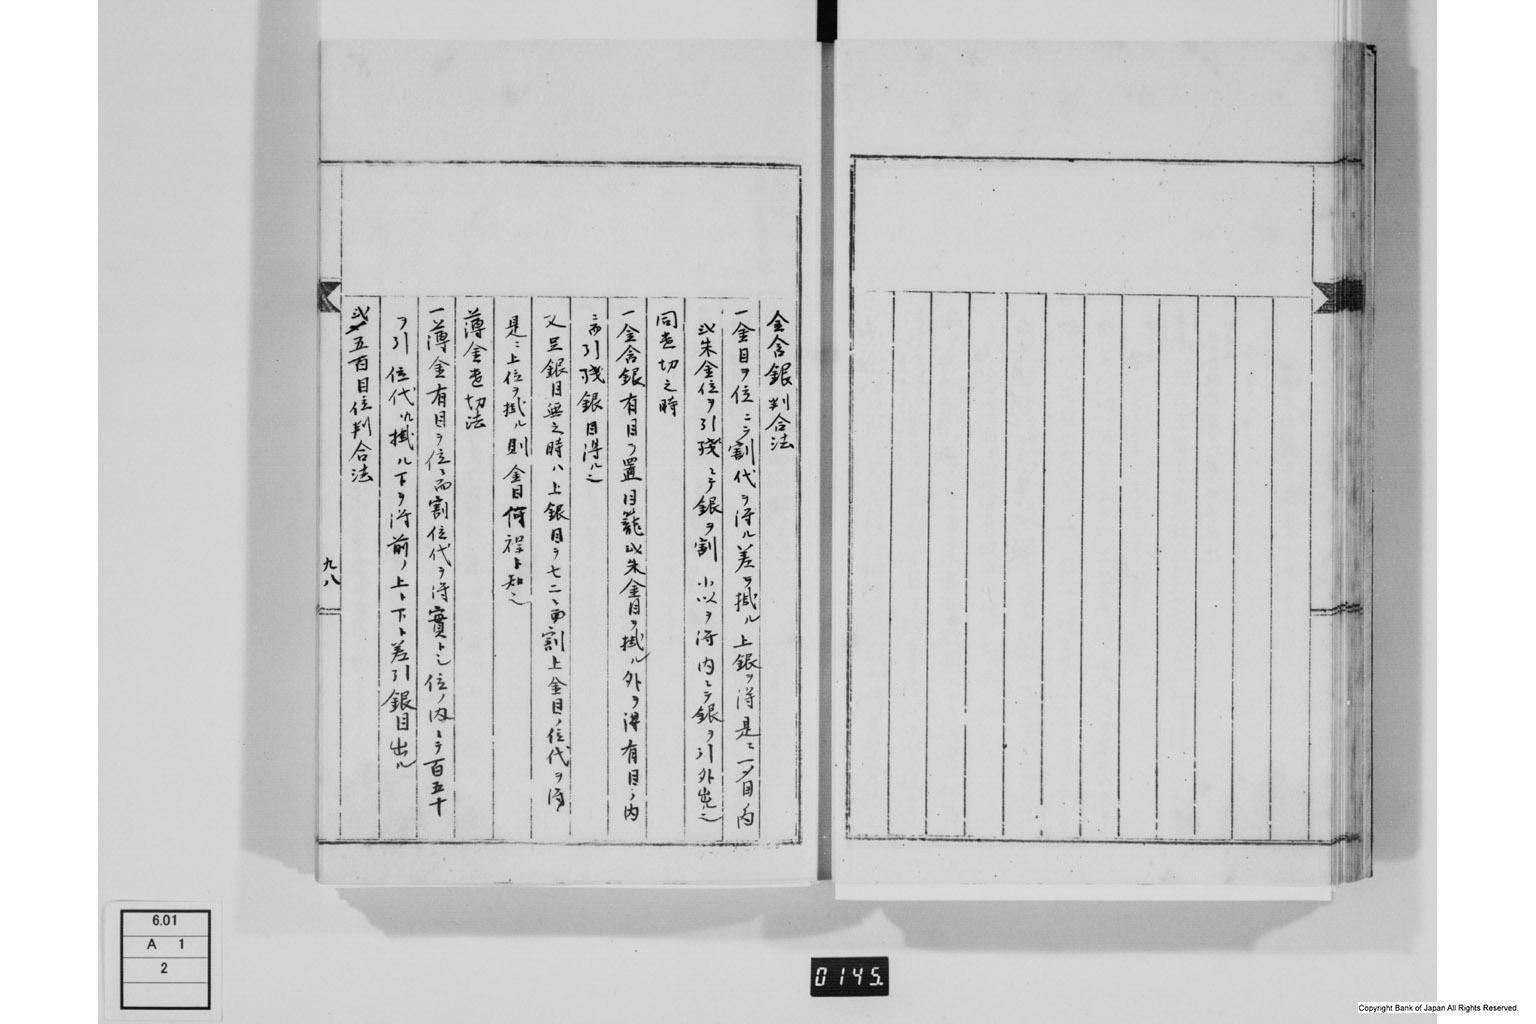 金含銀判合法
一金目ヲ位ニテ割代ヲ得ル差ヲ掛ル上銀ヲ得是ニ一匁目内
弐朱金位ヲ引残ニテ銀ヲ割小以ヲ得内ニテ銀ヲ引外出之
同壱切之時
一金含銀有目ヲ置目籠弐朱金目ヲ掛ル外ヲ得有目ノ内
ニ而引残銀目得ル之
又足銀目無之時ハ上銀目ヲ七二ニ而割上金目ノ位代ヲ得
是ニ上位ヲ掛ル則金目何程ト知之
薄金壱切法
一薄金有目ヲ位ニ而割位代ヲ得實トシ位ノ内ニテ百五十
ヲ引位代ニ掛ル下ヲ得前ノ上ト下ト差引銀目出ル
弐匁五百目位判合法
九八
6.01
A 1
2
0145.
Copyright Bank of Japan All Rights Reserved.